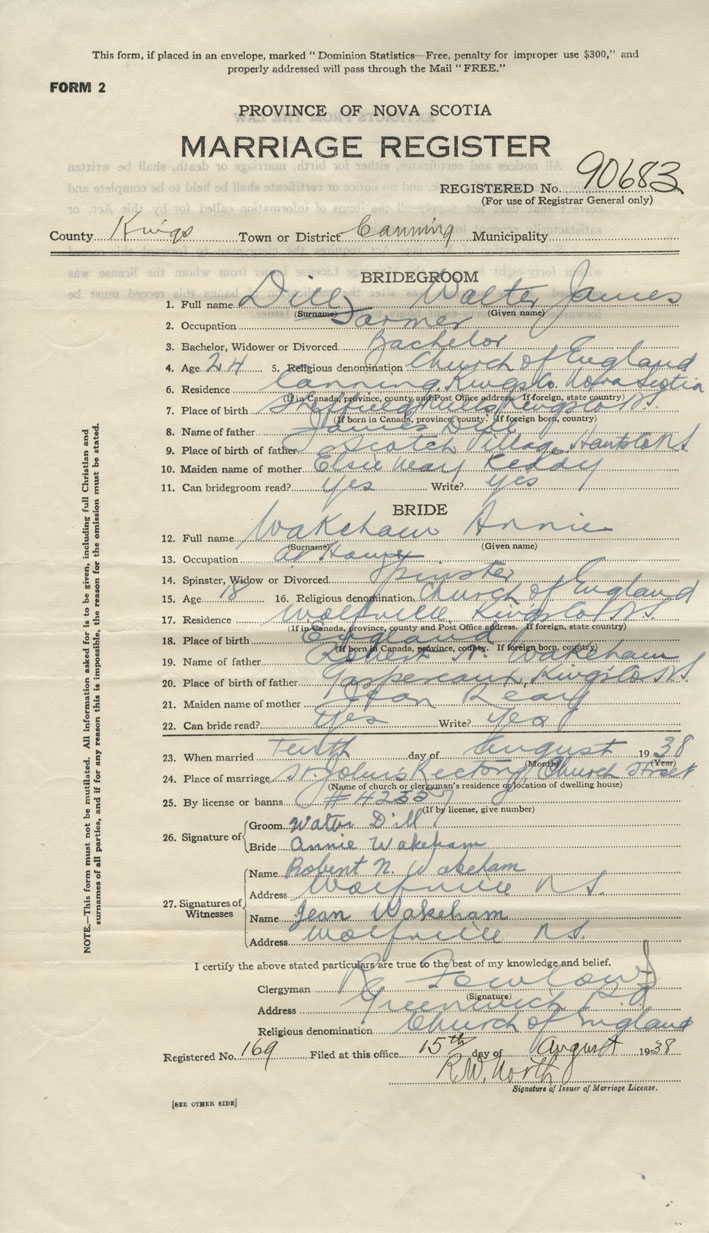 This form, if placed in an envelope, marked "Dominion Statistics—Free, penalty for improper use $300," and
properly addressed will pass through the Mail "FREE."
FORM 2
PROVINCE OF NOVA SCOTIA
MARRIAGE REGISTER
REGISTERED No. 90683
(For use of Registrar General only)
County Kings Town or District Canning Municipality
BRIDEGROOM
1. Full name Dill Walter James
(Surname) (Given name)
2. Occupation Farmer
3. Bachelor, Widower or Divorced Bachelor
4. Age 24 5. Religious denomination Church of England
6. Residence Canning, Kings Co. Nova Scotia
(If in Canada, province, county and Post Office address. If foreign, state country)
7. Place of birth Sheffield Mills Kings Co N.S.
(If born in Canada, province, county. If foreign born, country)
8. Name of father James Dill
9. Place of birth of father Scotch Village, Hants Co N S
10. Maiden name of mother Elsie Mary Keddy
11. Can bridegroom read? yes Write? yes
BRIDE
12. Full name Wakeham Annie
(Surname) (Given name)
13. Occupation At Home
14. Spinster, Widow or Divorced Spinster
15. Age 18 16. Religious denomination Church of England
17. Residence Wolfville, Kings Co N.S.
(If in Canada, province, county and Post Office address. If foreign, state country)
18. Place of birth England
(If born in Canada, province, county. If foreign born, country)
19. Name of father Robert N. Wakeham
20. Place of birth of father Gaspereaux, Kings Co N.S.
21. Maiden name of mother Jean
22. Can bride read? Yes Write? Yes
23. When married Tenth day of August 1938
(Month) (Year)
24. Place of marriage St. John's Rectory, Church Street
(Name of church or clergyman's residence or location of dwelling house)
25. By license or banns # 4235
(If by license, give number)
26. Signature of Groom Walter Dill
Bride Annie Wakeham
27. Signatures of Witnesses Name Robert N. Wakeham
Address Wolfville N.S.
Name Jean Wakeham
Address Wolfville N.S.
I certify the above stated particulars are true to the best of my knowledge and belief.
Clergyman
(Signature)
Address Greenwich P.O.
Religious denomination Church of England
Registered No. 169 Filed at this office 15th day of August 1938
R.W. North
Signature of Issuer of Marriage License.
[SEE OTHER SIDE]
NOTE.—This form must not be mutilated. All information asked for is to be given, including full Christian and
surnames of all parties, and if for any reason this is impossible, the reason for the omission must be stated.